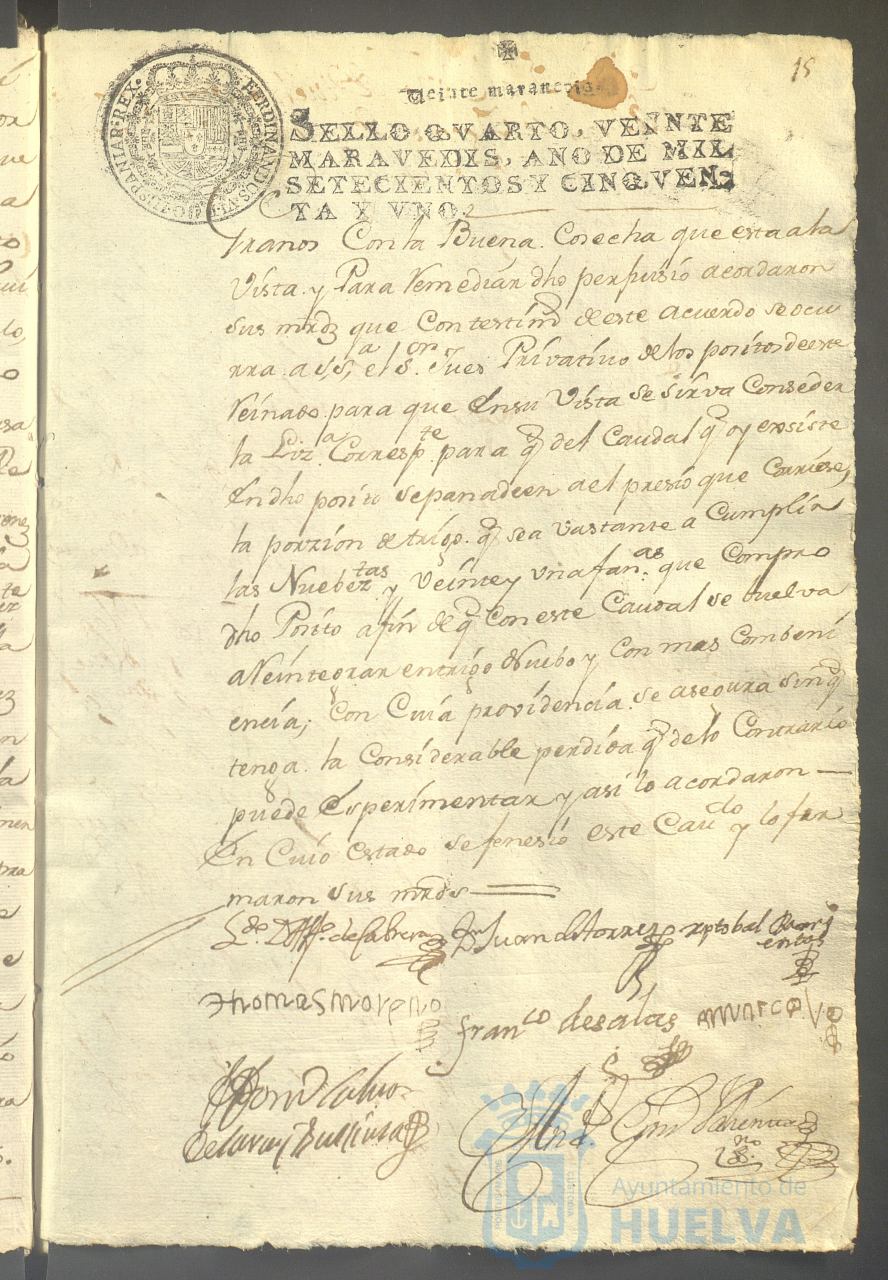 15
Veinte maravedis.
FERDINANDUS·VI·D·G·HISPANIAR·REX·
SELLO QVARTO, VEINTE
MARAVEDIS, AÑO DE MIL
SETECIENTOS Y CINQVEN-
TA Y VNO.
granos Con la Buena Cosecha que esta a la
Vista y Para Remediar dho perjuisio acordaron
sus mrdz que Con testimo de este acuerdo se ocu
rra a S,Sa, el Sor Jues Privativo de los positos de este
Reinado para que En su Vista se sirva Conseder
la Liza Correspte para q del Caudal q oy exsiste
En dho posito se panadeen a el presio que Corriese,
la porzion de trigo q sea vastante a Cumplir
las Nuebeztas y Veinte y una fanas que Compro
dho Posito a fin de q Con este Caudal se buelva
a Reintegrar en trigo Nuebo y Con mas Combeni
encia; Con Cuia providencia se asegura sin q
tenga la Considerable perdida q de lo Contrario
puede Esperimentar y asi lo acordaron —
En Cuio estado se fenesió este Cavdo y lo fir
maron sus mrds
Ldo. D. Alfo. de Cabrera Dn Juan de torres xptobal Barri
entos
thomas moreno
franco de salas
Ayuntamiento de
HUELVA